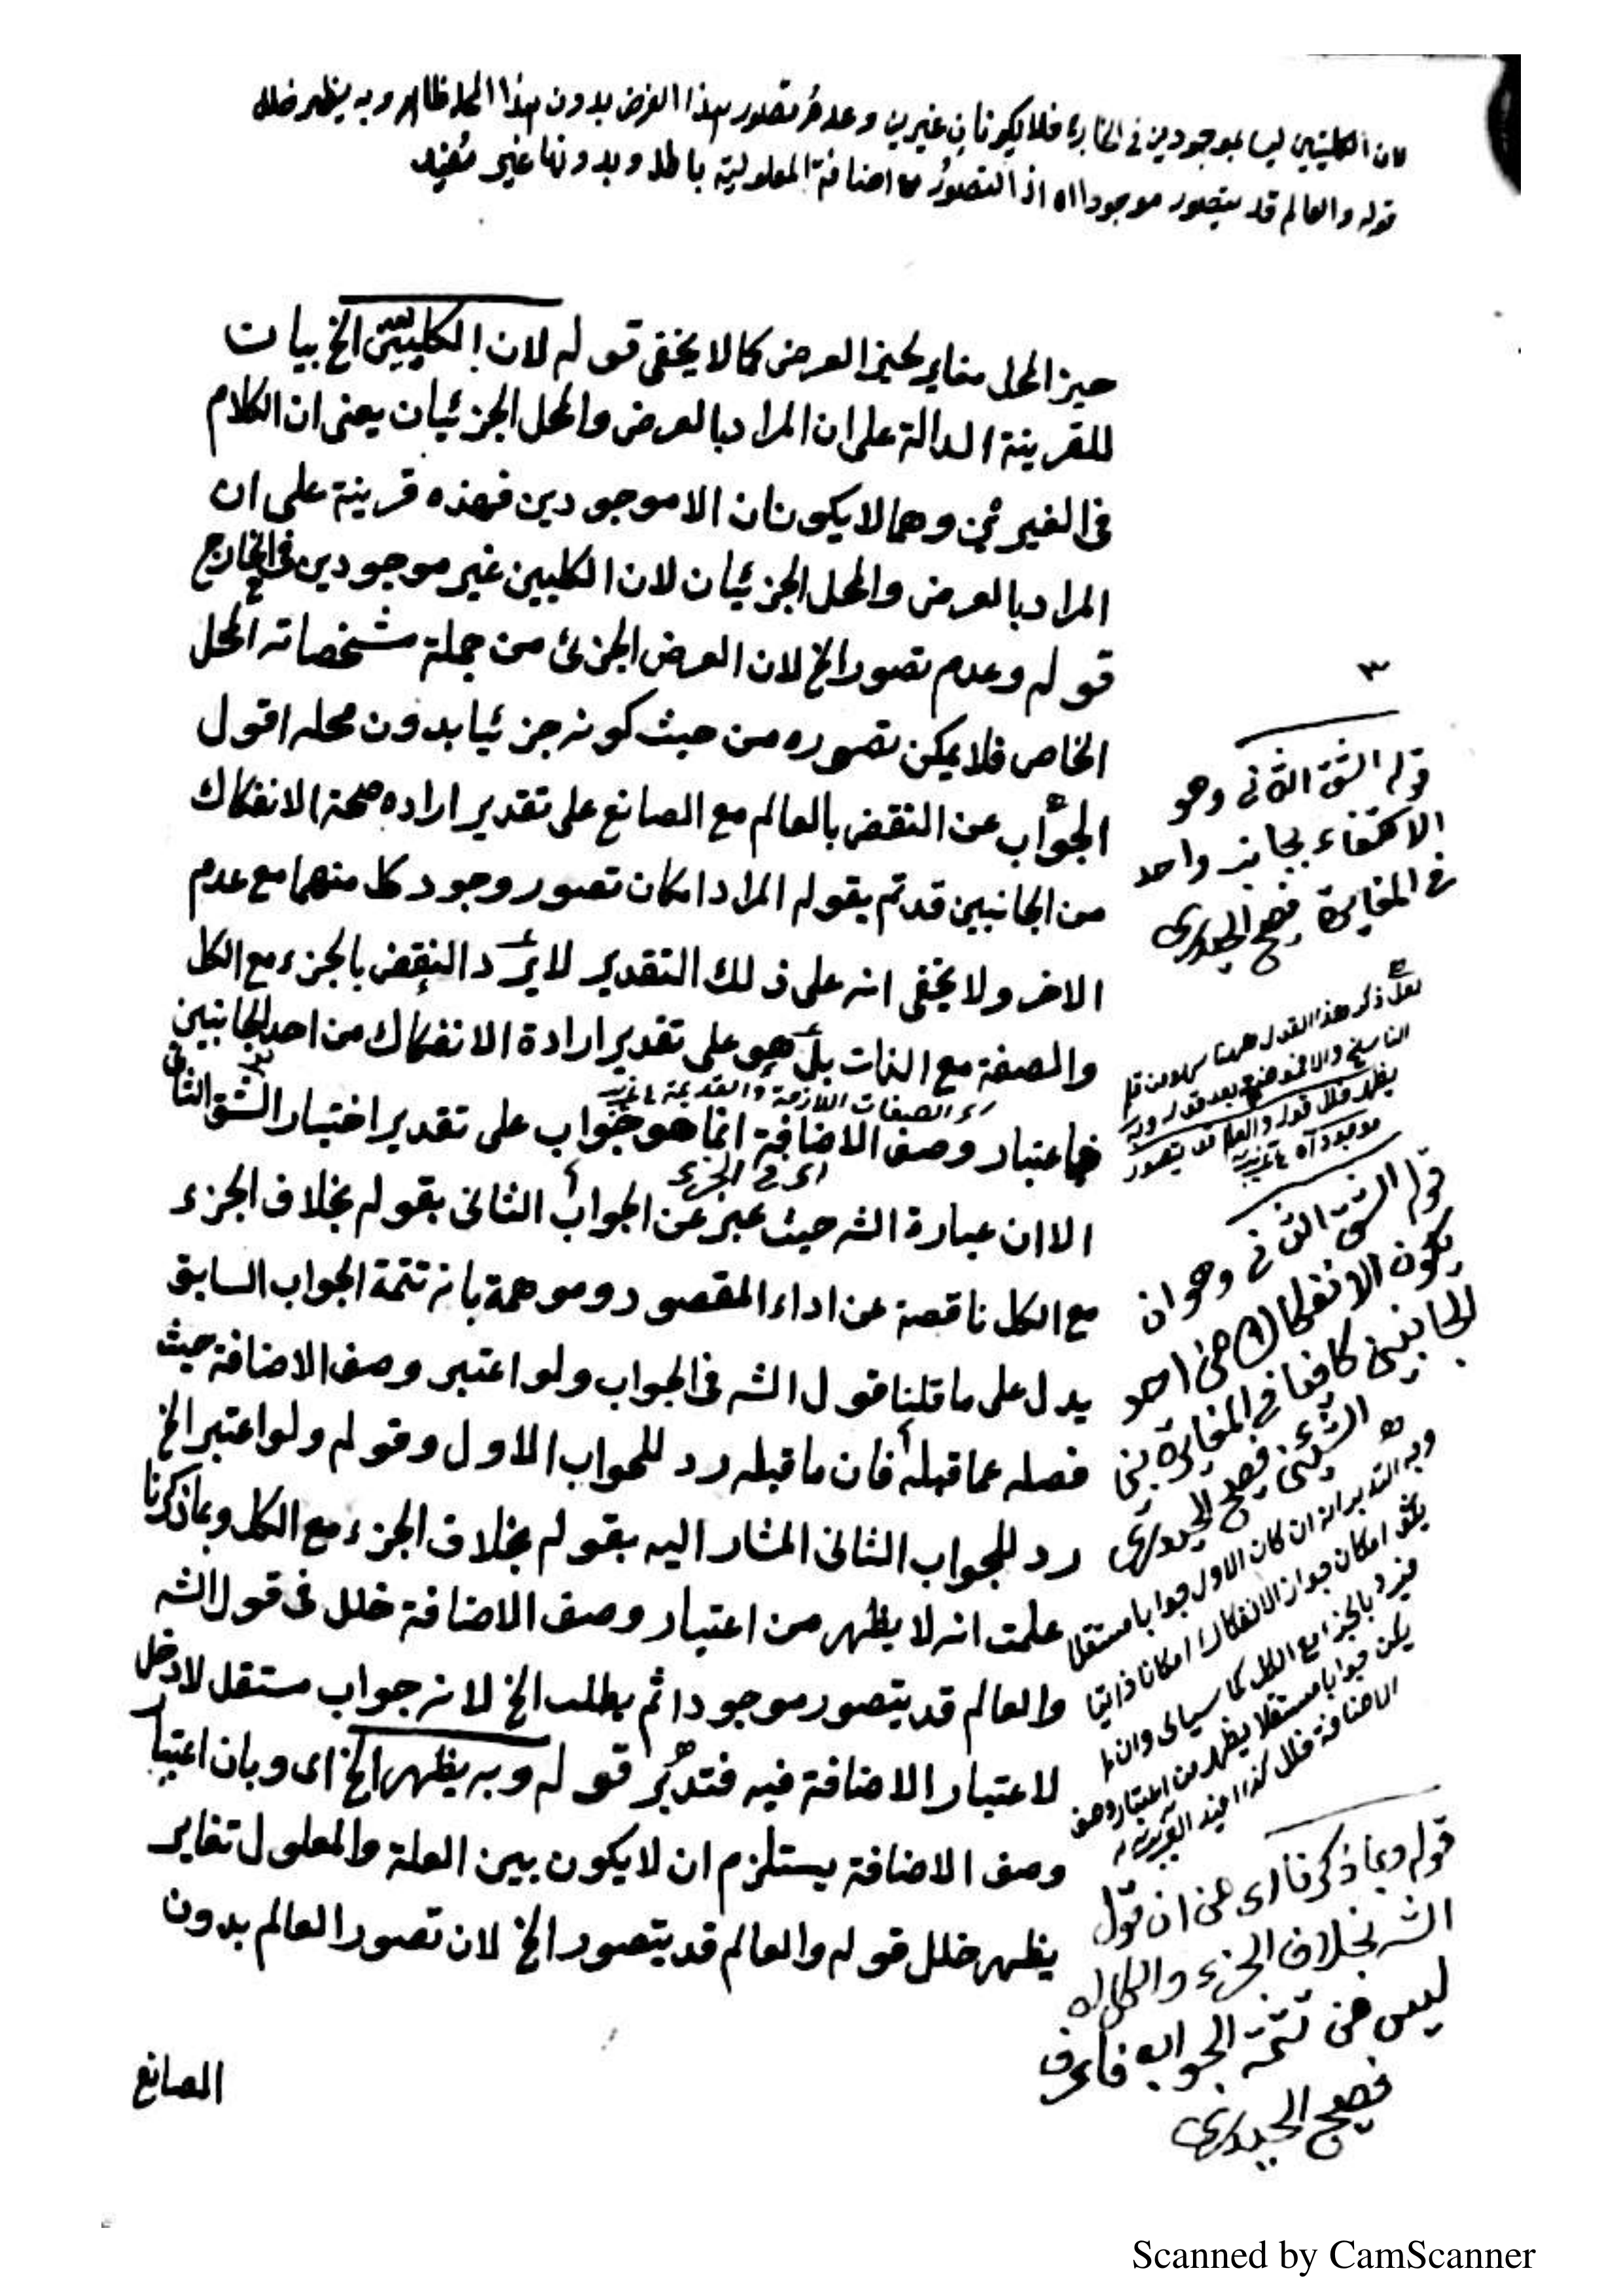 لان الكليتين ليسا بموجودين في الخارج فلا يكونان غيرين وعدم تصور هذا العرض بدون هذا المحل ظاهر وبه يظهر خلل
قوله والعالم قد يتصور موجودا اه اذ التصور مع اضافة المعلولية باطل وبدونها غير مفيد
حيز المحل مغاير لحيز العرض كما لا يخفى قوله لان الكليين الخ بيان
للقرينة الدالة على ان المراد بالعرض والمحل الجزئيات يعنى ان الكلام
فى الغيرين وهما لا يكونان الا موجودين فهذه قرينة على ان
المراد بالعرض والمحل الجزئيان لان الكليين غير موجودين فى الخارج
قوله وعدم تصور الخ لان العرض الجزئى من جملة مشخصاته المحل
الخاص فلا يمكن تصوره من حيث كونه جزئيا بدون محله اقول
الجواب عن النقض بالعالم مع الصانع على تقدير اراده صحة الانفكاك
من الجانبين قد تم بقوله المراد امكان تصور وجود كل منهما مع عدم
الاخر ولا يخفى انه على ذلك التقدير لا يرد النقض بالجزء مع الكل
والصفة مع الذات بل هو على تقدير ارادة الانفكاك من احد الجانبين
الصفات اللازمة والقديمة
فاعتبار وصف الاضافة انما هو جواب على تقدير اختيار الشق الثانى
اى فى الجزء
الا ان عبارة الشه حيث عبر عن الجواب الثانى بقوله بخلاف الجزء
مع الكل ناقصة عن اداء المقصود وموهمة بانه تتمة الجواب السابق
يدل على ما قلنا قول الشه فى الجواب ولو اعتبر وصف الاضافة حيث
فصله عما قبله فان ما قبله رد للجواب الاول وقوله ولو اعتبر الخ
رد للجواب الثانى المشار اليه بقوله بخلاف الجزء مع الكل وبما ذكرنا
علمت انه لا يظهر من اعتبار وصف الاضافة خلل فى قول الشه
والعالم قد يتصور موجودا ثم يطلب الخ لانه جواب مستقل لا دخل
لاعتبار الاضافة فيه فتدبر قوله وبه يظهر الخ اى وبان اعتبار
وصف الاضافة يستلزم ان لا يكون بين العلة والمعلول تغاير
يظهر خلل قوله والعالم قد يتصور الخ لان تصور العالم بدون
الصانع
٣
قوله الشق الثانى وهو
الاكتفاء بجانب واحد
فى المغايرة فصيح الحيدرى
لعل ذكر هذا القول ههنا سهو من قلم
الناسخ والا فموضعه بعد قوله وبه
يظهر خلل قوله والعالم قد يتصور
موجودا اه
قوله الشق الثانى وهو ان
يكون الانفكاك من احد
الجانبين كافيا فى المغايرة بين
الشيئين فصيح الحيدرى
وجه التدبر انه ان كان الاول جوابا مستقلا
امكان جواز الانفكاك امكانا ذاتيا
فيرد بالجزء مع الكل كما سيأتى وان لم
يكن جوابا مستقلا يظهر من اعتبار وصف
الاضافة خلل كذا
قوله وبما ذكرنا اى من ان قول
الشه بخلاف الجزء والكل اه
ليس من تتمة الجواب فاعرف
فصيح الحيدرى
Scanned by CamScanner